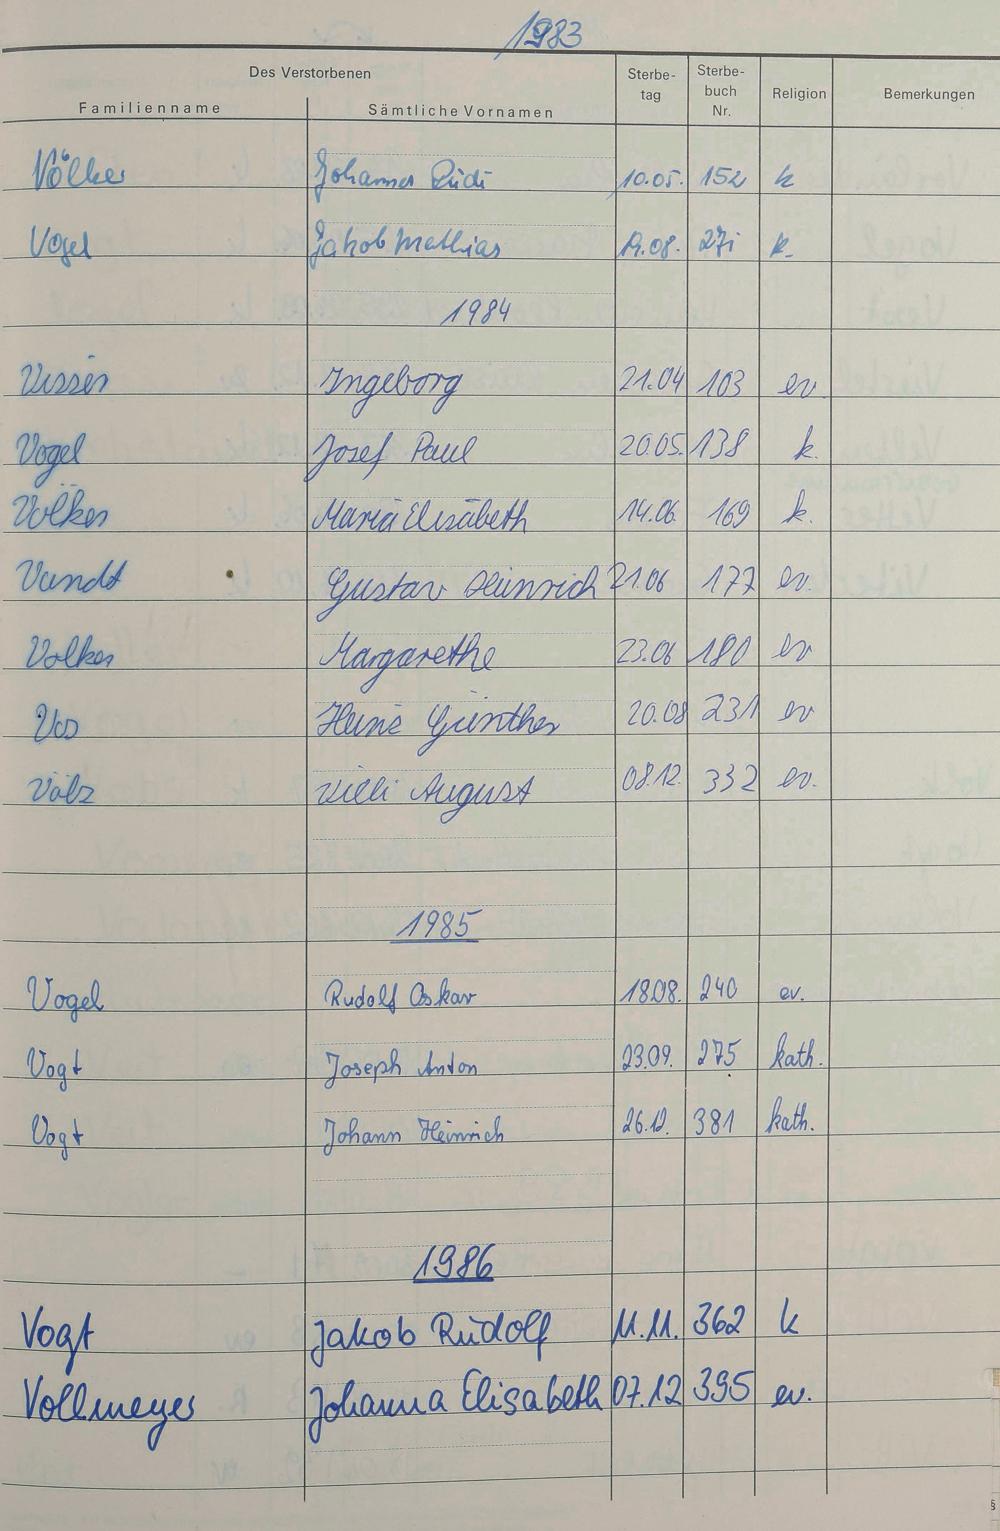 1983
Des Verstorbenen
Familienname Sämtliche Vornamen Sterbe-tag Sterbe-buch Nr. Religion Bemerkungen
Völker Johannes Rudi 10.05. 152 k
Vogel Jakob Mathias 271 k.
1984
Visser Ingeborg 21.04 103 ev.
Vogel Josef Paul 20.05. 138 k.
Völker Maria Elisabeth 14.06. 169 k.
Vandt Gustav Heinrich 21.06 177 ev.
Volker Margarethe 23.06 180 ev
Vos Heinz Günther 20.08 231 ev
Völz Willi August 08.12. 332 ev.
1985
Vogel Rudolf Oskar 18.08. 240 ev.
Vogt Joseph Anton 23.09. 275 kath.
Vogt Johann Heinrich 26.12. 381 kath.
1986
Vogt Jakob Rudolf 11.11. 362 k
Vollmeyer Johanna Elisabeth 07.12 395 ev.